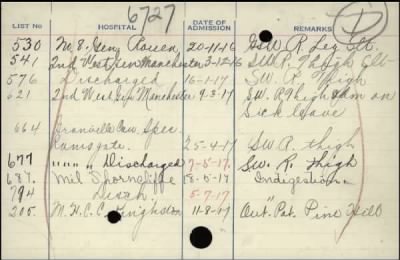 6727
LIST No HOSPITAL DATE OF ADMISSION REMARKS
530 No 8. Gen Rouen 20-11-16 GSW R Leg Slt.
541 2nd West Gen Manchester 3-12-16 SW R Thigh Slt
576 Discharged 16-1-17 SW. R Thigh
621 2nd West Gen Manchester 9-3-17 SW. R Thigh adm on
Sick Leave
664 Granville Can Spec.
Ramsgate. 25-4-17 SW R. thigh
677 " " " " Discharged 7-5-17. Sw. R. thigh
687. Mil Thorncliffe 18-5-17 Indigestion.
794 Disch. 5-7-17
205. M.H.C.C. Kingston 11-8-17 "Out" Pat Pine Hill